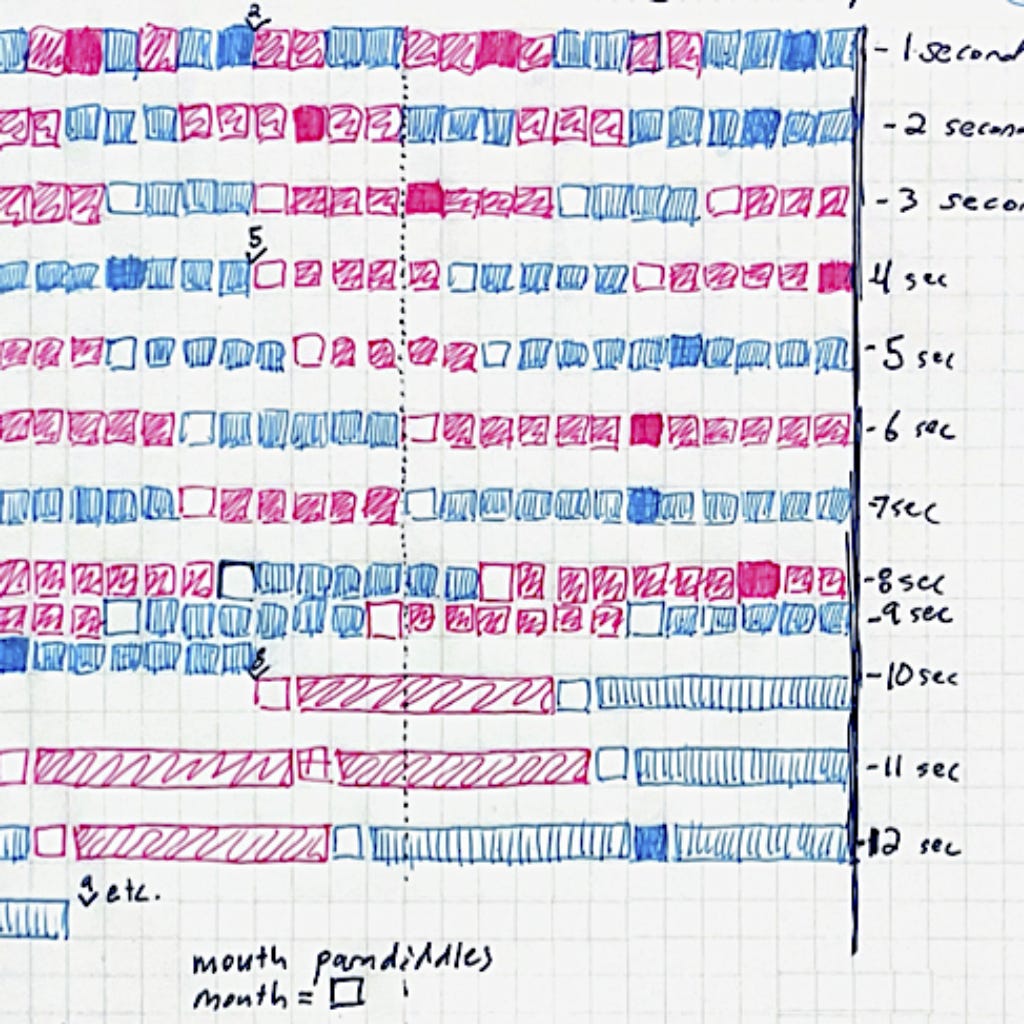 2
- 1 second
- 2 secon
- 3 secon
5
4 sec
- 5 sec
- 6 sec
- 7 sec
- 8 sec
- 9 sec
8
- 10 sec
- 11 sec
- 12 sec
9 etc.
mouth pandiddles
mouth =